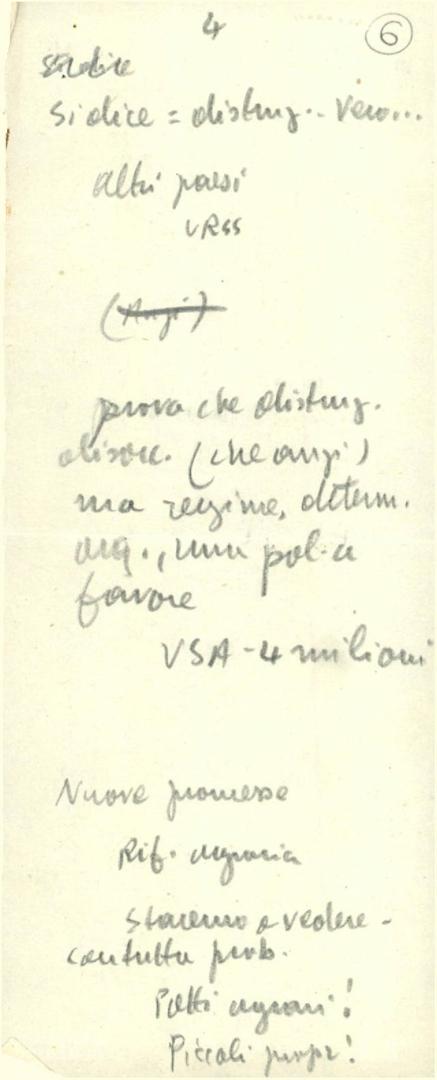 4
6
Si dice
Si dice = distruz.. vero...
altri paesi
URSS
(Anzi)
prova che distruz.
disocc. (che anzi)
ma regime, determ.
org., una pol. a
favore
USA - 4 milioni
Nuove promesse
Rif. agraria
Staremo a vedere -
contutto prob.
Patti agrari!
Piccoli propr!